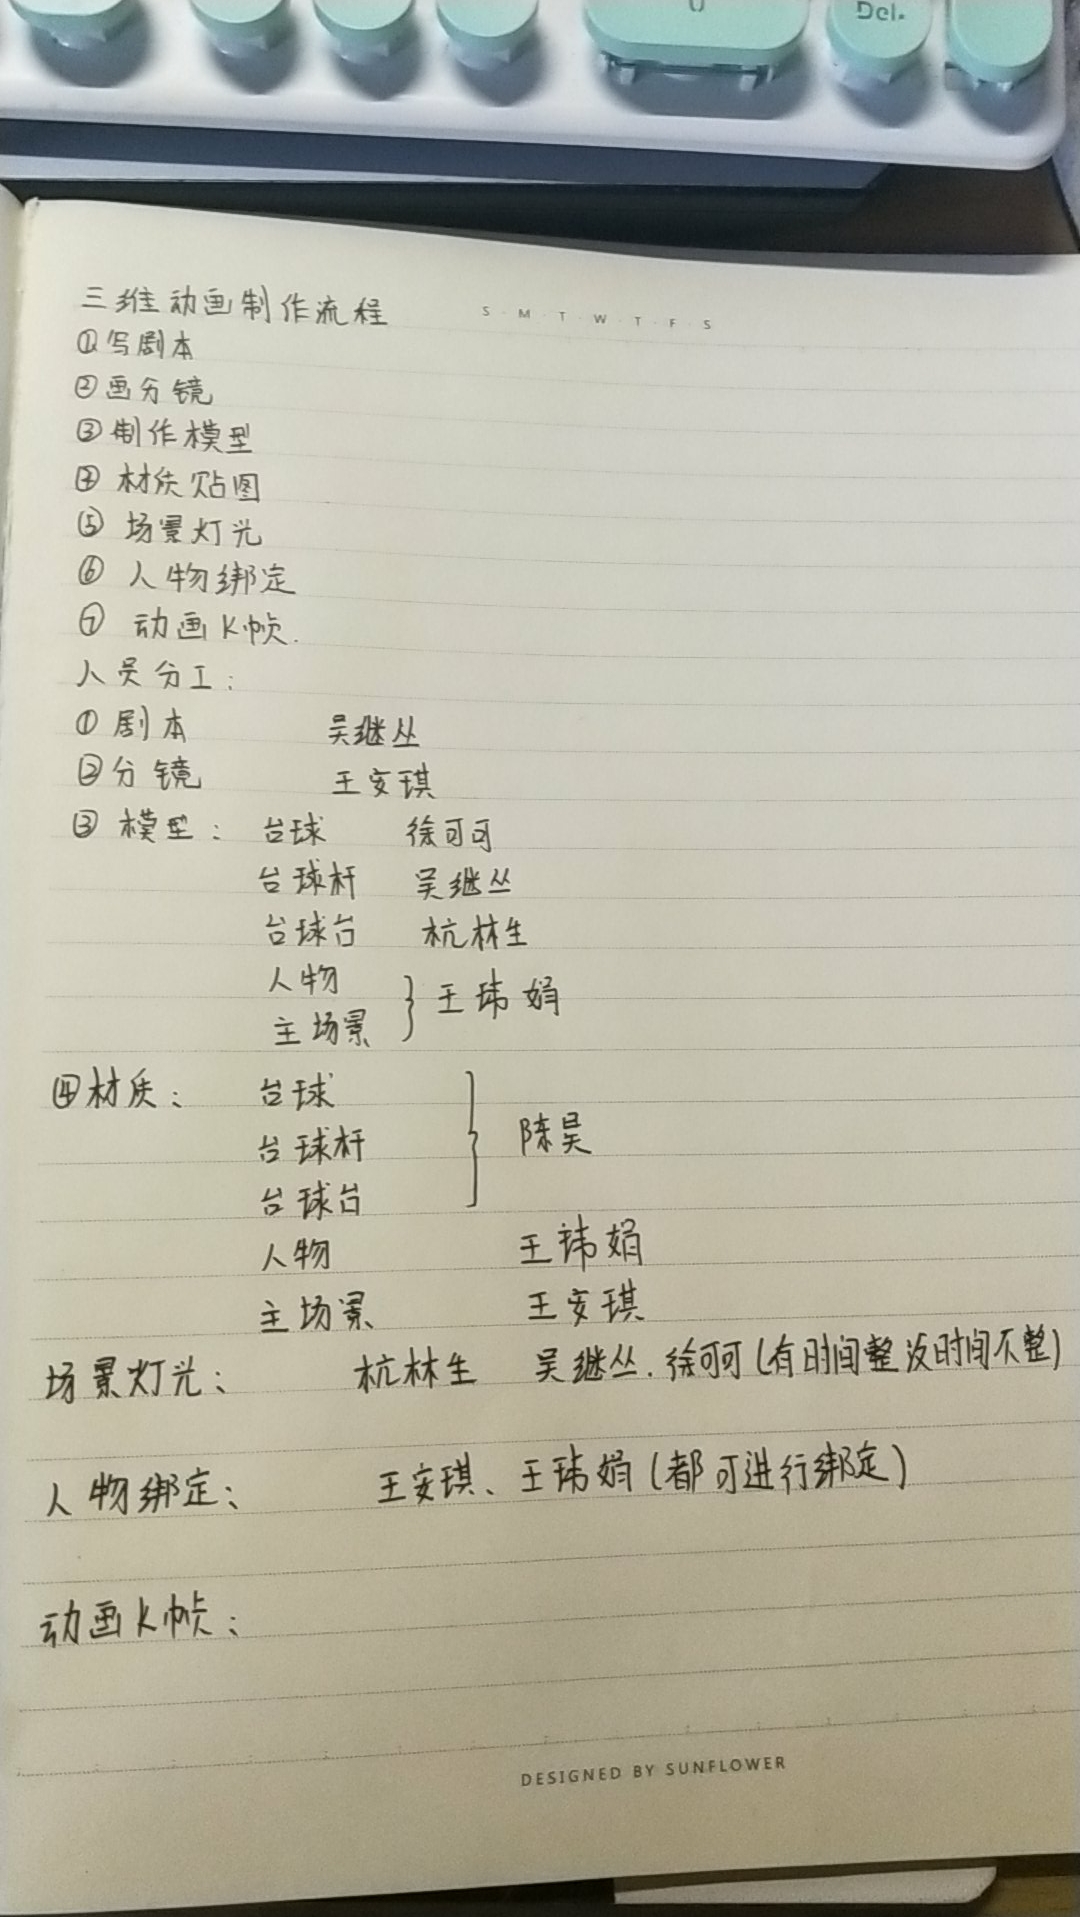 Del.
三维动画制作流程
S M T W T F S
①写剧本
②画分镜
③制作模型
④材质贴图
⑤场景灯光
⑥人物绑定
⑦动画K帧.
人员分工:
①剧本 吴继丛
②分镜 王安琪
③模型: 台球 徐可可
台球杆 吴继丛
台球台 杭林生
人物
主场景 } 王玮娟
④材质: 台球
台球杆 } 陈昊
台球台
人物 王玮娟
主场景 王安琪
场景灯光: 杭林生 吴继丛.徐可可(有时间整没时间不整)
人物绑定: 王安琪、王玮娟(都可进行绑定)
动画K帧:
DESIGNED BY SUNFLOWER